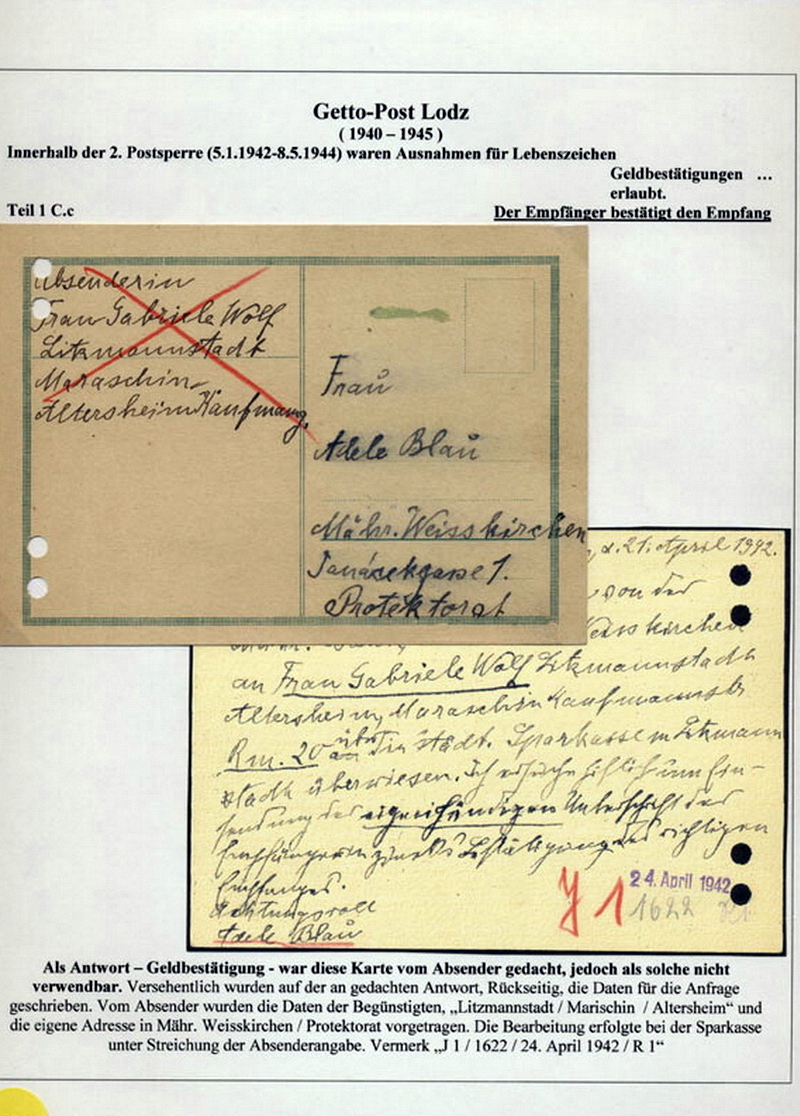 Getto-Post Lodz
( 1940 – 1945 )
Innerhalb der 2. Postsperre (5.1.1942-8.5.1944) waren Ausnahmen für Lebenszeichen
Geldbestätigungen ...
erlaubt.
Teil 1 C.c
Der Empfänger bestätigt den Empfang
Absenderin
Frau Gabriele Wolf
Litzmannstadt
Maraschin
Altersheim Kaufmang.
Frau
Adele Blau
Mähr. Weisskirchen
Janáčekgasse 1.
Protektorat
d. 21. April 1942.
von der
Weisskirchen
an Frau Gabriele Wolf Litzmannstadt
Altersheim, Maraschin Kaufmannstr
Rm. 20 über die städt. Sparkasse in Litzmann
stadt überwiesen. Ich ersuche höflich um Ein-
sendung der eigenhändigen Unterschrift der
Empfängerin zwecks Bestätigung des richtigen
Empfanges.
Achtungsvoll
Adele Blau
J 1
24. April 1942
1622
Als Antwort – Geldbestätigung - war diese Karte vom Absender gedacht, jedoch als solche nicht
verwendbar. Versehentlich wurden auf der an gedachten Antwort, Rückseitig, die Daten für die Anfrage
geschrieben. Vom Absender wurden die Daten der Begünstigten, „Litzmannstadt / Marischin / Altersheim“ und
die eigene Adresse in Mähr. Weisskirchen / Protektorat vorgetragen. Die Bearbeitung erfolgte bei der Sparkasse
unter Streichung der Absenderangabe. Vermerk „J 1 / 1622 / 24. April 1942 / R 1“